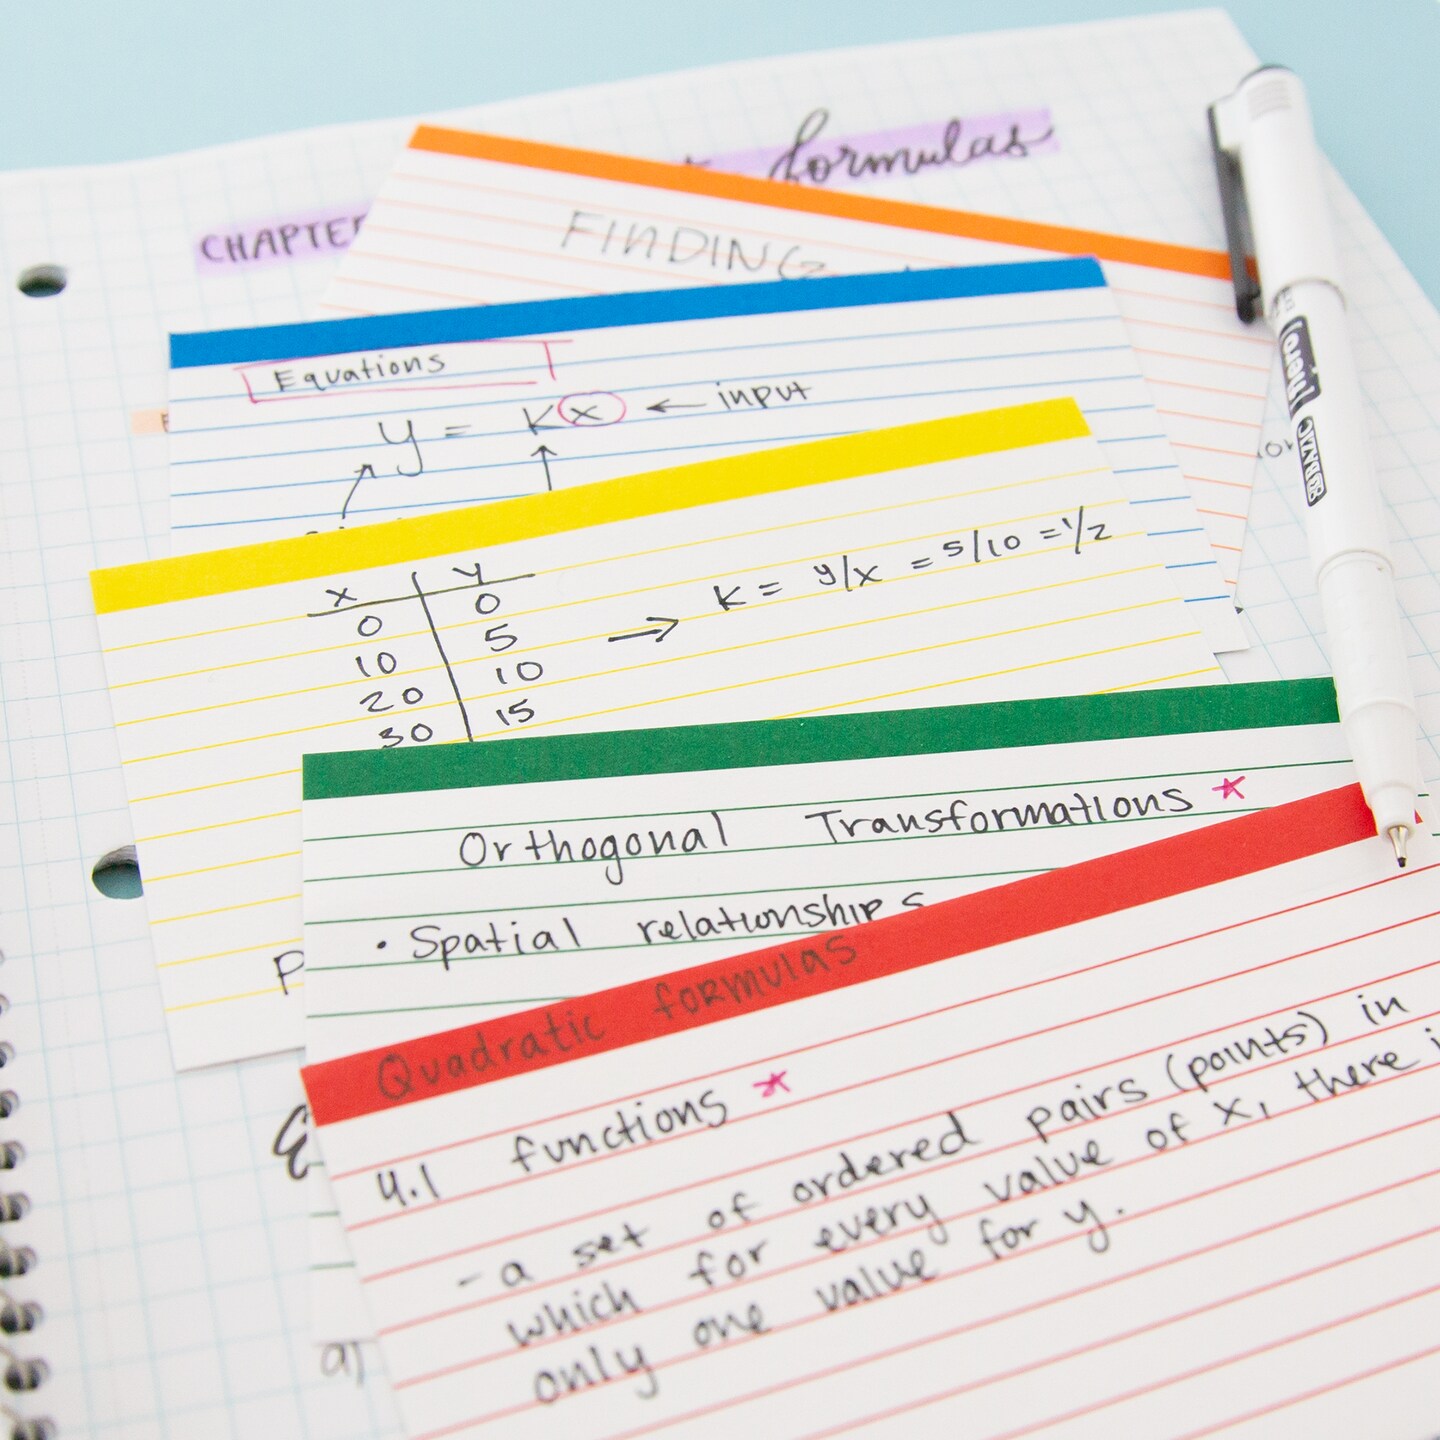 formulas
CHAPTER
FINDING
Equations
y = kx ← input
x y
0 0
10 5
20 10
30 15
→ k = y/x = 5/10 = 1/2
Orthogonal Transformations *
• Spatial relationships
Quadratic formulas
4.1 functions *
- a set of ordered pairs (points) in
which for every value of x, there i
only one value for y.
a)